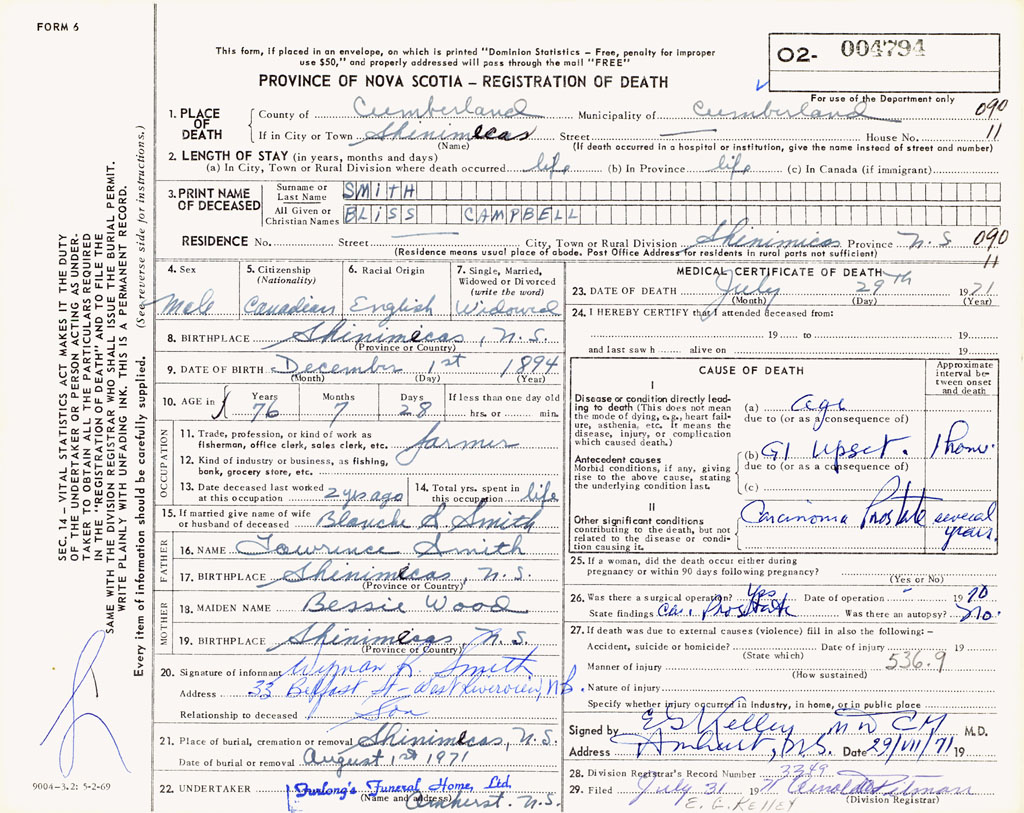 FORM 6
This form, if placed in an envelope, on which is printed "Dominion Statistics – Free, penalty for improper
use $50," and properly addressed will pass through the mail "FREE"
O2- 004794
PROVINCE OF NOVA SCOTIA – REGISTRATION OF DEATH
For use of the Department only
1. PLACE OF DEATH County of Cumberland Municipality of Cumberland 090
If in City or Town Shinimicas Street — House No. 11
(Name) (If death occurred in a hospital or institution, give the name instead of street and number)
2. LENGTH OF STAY (in years, months and days)
(a) In City, Town or Rural Division where death occurred life (b) In Province life (c) In Canada (if immigrant)
3. PRINT NAME OF DECEASED Surname or Last Name SMITH
All Given or Christian Names BLISS CAMPBELL
RESIDENCE No. Street — City, Town or Rural Division Shinimicas Province N.S. 090
(Residence means usual place of abode. Post Office Address for residents in rural parts not sufficient) 11
4. Sex Male
5. Citizenship (Nationality) Canadian
6. Racial Origin English
7. Single, Married, Widowed or Divorced (write the word) Widowed
8. BIRTHPLACE Shinimicas, N.S.
(Province or Country)
9. DATE OF BIRTH December 1st 1894
(Month) (Day) (Year)
10. AGE in Years 76 Months 7 Days 28 If less than one day old hrs. or min.
OCCUPATION
11. Trade, profession, or kind of work as fisherman, office clerk, sales clerk, etc. farmer
12. Kind of industry or business, as fishing, bank, grocery store, etc.
13. Date deceased last worked at this occupation 2 yrs ago
14. Total yrs. spent in this occupation life
15. If married give name of wife or husband of deceased Blanche S. Smith
FATHER
16. NAME Lawrence Smith
17. BIRTHPLACE Shinimicas, N.S.
(Province or Country)
MOTHER
18. MAIDEN NAME Bessie Wood
19. BIRTHPLACE Shinimicas N.S.
(Province or Country)
20. Signature of informant Wyman K. Smith
Address 33 Belfast St – West Riverview, N.B.
Relationship to deceased Son
21. Place of burial, cremation or removal Shinimicas, N.S.
Date of burial or removal August 1st 1971
22. UNDERTAKER Furlong's Funeral Home, Ltd.
(Name and address) Amherst. N.S.
MEDICAL CERTIFICATE OF DEATH
23. DATE OF DEATH July 29TH 1971
(Month) (Day) (Year)
24. I HEREBY CERTIFY that I attended deceased from:
19 to 19
and last saw h alive on 19
CAUSE OF DEATH
Approximate interval between onset and death
I
Disease or condition directly leading to death (This does not mean the mode of dying, e.g., heart failure, asthenia, etc. It means the disease, injury, or complication which caused death.)
(a) age
due to (or as a consequence of)
Antecedent causes
Morbid conditions, if any, giving rise to the above cause, stating the underlying condition last.
(b) GI Upset. 1 hour
due to (or as a consequence of)
(c)
II
Other significant conditions contributing to the death, but not related to the disease or condition causing it.
Carcinoma Prostate several years.
25. If a woman, did the death occur either during
pregnancy or within 90 days following pregnancy?
(Yes or No)
26. Was there a surgical operation? Yes Date of operation - 1970
State findings Ca. Prostate Was there an autopsy? No.
27. If death was due to external causes (violence) fill in also the following: –
Accident, suicide or homicide? Date of injury 19
(State which) 536.9
Manner of injury
(How sustained)
Nature of injury
Specify whether injury occurred in industry, in home, or in public place
Signed by E G Kelley MD CM M.D.
Address Amherst, N.S. Date 29/VII/71 19
28. Division Registrar's Record Number 3349
29. Filed July 31 19
(Division Registrar)
E. G. KELLEY
SEC. 14 – VITAL STATISTICS ACT MAKES IT THE DUTY
OF THE UNDERTAKER OR PERSON ACTING AS UNDER-
TAKER TO OBTAIN ALL THE PARTICULARS REQUIRED
IN THE "REGISTRATION OF DEATH" AND TO FILE THE
SAME WITH THE DIVISION REGISTRAR WHO SHALL ISSUE THE BURIAL PERMIT.
WRITE PLAINLY WITH UNFADING INK. THIS IS A PERMANENT RECORD.
Every item of information should be carefully supplied. (See reverse side for instructions.)
9004-3.2: 5-2-69